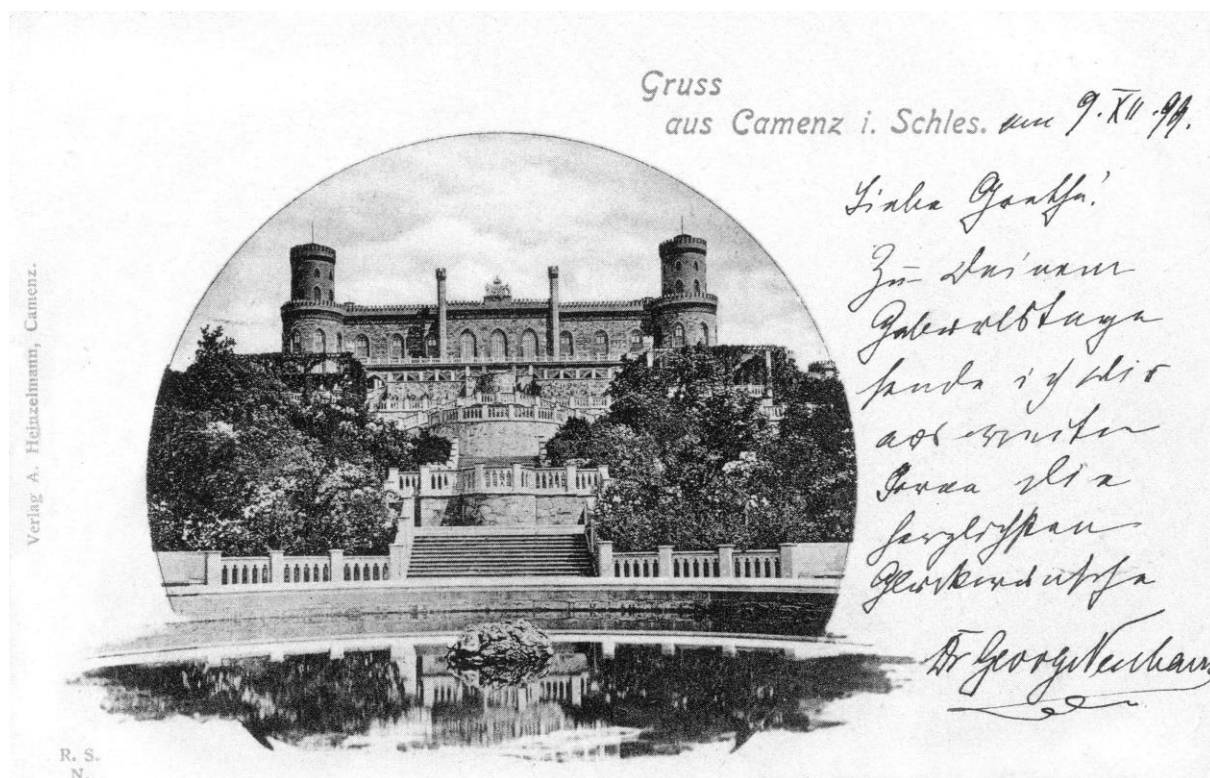 Gruss
aus Camenz i. Schles. am 9. XII. 99.
Liebe Grethe!
Zu Deinem
Geburtstage
sende ich Dir
aus weiter
Ferne die
herzlichsten
Glückwünsche
Dr Georg Neuhaus
Verlag A. Heinzelmann, Camenz.
R. S.
N.